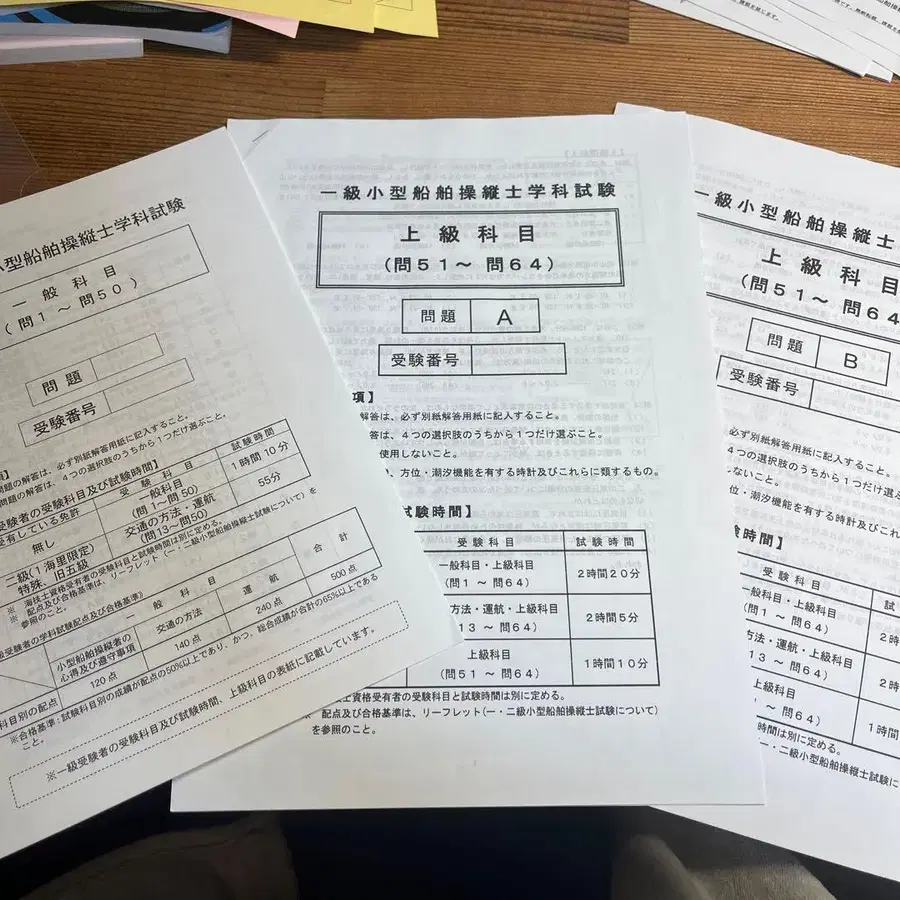 小型船舶操縦士学科試験
一般科目
(問1 ～ 問50)
問題
受験番号
問題の解答は、必ず別紙解答用紙に記入すること。
問題の解答は、4つの選択肢のうちから1つだけ選ぶこと。
受験者の受験科目及び試験時間】
受有している免許 受験科目 試験時間
無し 一般科目 (問1～問50) 1時間10分
二級(1海里限定) 特殊、旧五級 交通の方法・運航 (問13～問50) 55分
※ 海技士資格受有者の受験科目と試験時間は別に定める。
※ 配点及び合格基準は、リーフレット(一・二級小型船舶操縦士試験について)を
参照のこと。
受験者の学科試験配点及び合格基準》
一般科目 合計
小型船舶操縦者の心得及び遵守事項 交通の方法 運航
科目別の配点 120点 140点 240点 500点
※合格基準:試験科目別の成績が配点の50%以上であり、かつ、総合成績が合計の65%以上である
こと。
※一級受験者の受験科目及び試験時間、上級科目の表紙に記載しています。
一級小型船舶操縦士学科試験
上級科目
(問51～ 問64)
問題 A
受験番号
項】
解答は、必ず別紙解答用紙に記入すること。
答は、4つの選択肢のうちから1つだけ選ぶこと。
使用しないこと。
、方位・潮汐機能を有する時計及びこれらに類するもの。
試験時間】
受験科目 試験時間
一般科目・上級科目 (問1 ～ 問64) 2時間20分
方法・運航・上級科目 13 ～ 問64) 2時間5分
上級科目 (問51 ～ 問64) 1時間10分
士資格受有者の受験科目と試験時間は別に定める。
※ 配点及び合格基準は、リーフレット(一・二級小型船舶操縦士試験について)
を参照のこと。
一級小型船舶操縦士
上級科目
(問51～ 問64
問題 B
受験番号
必ず別紙解答用紙に記入すること。
4つの選択肢のうちから1つだけ選ぶ
しないこと。
位・潮汐機能を有する時計及びこれ
験時間】
受験科目 試
一般科目・上級科目 (問1 ～ 問64) 2時
方法・運航・上級科目 13 ～ 問64) 2時
上級科目 ～ 問64) 1時間
時間は別に定める。
一・二級小型船舶操縦士試験に